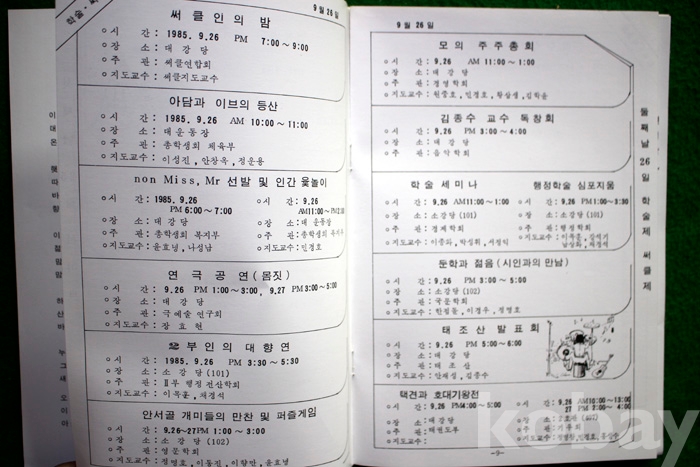 학술·
9월 26일
써클인의 밤
○시 간 : 1985. 9.26 PM 7:00～9:00
○장 소 : 대강당
○주 관 : 써클연합회
○지도교수 : 써클지도교수
아담과 이브의 등산
○시 간 : 1985. 9.26 AM 10:00～11:00
○장 소 : 대운동장
○주 관 : 총학생회 체육부
○지도교수 : 이성진, 안장옥, 정운용
non Miss, Mr 선발 및 인간 윷놀이
○시 간 : 1985. 9.26
PM 6:00～7:00
○장 소 : 대강당
○주 관 : 총학생회 복지부
○지도교수 : 윤효녕, 나성남
○시 간 : 9.26
AM11:00～PM
○장 소 : 대운동장
○주 관 : 총학생회 복지부
○지도교수 : 민경호
연극공연(몸짓)
○시 간 : 9.26 PM 1:00～3:00, 9.27 PM 3:00～5:00
○장 소 : 대강당
○주 관 : 극예술 연구회
○지도교수 : 장효현
2부인의 대향연
○시 간 : 1985. 9.26 PM 3:30～5:30
○장 소 : 소강당 (101)
○주 관 : Ⅱ부 행정전산학회
○지도교수 : 이목훈, 채경석
안서골 개미들의 만찬 및 퍼즐게임
○시 간 : 9.26~27PM 1:00～3:00
○장 소 : 소강당 (102)
○주 관 : 영문학회
○지도교수 : 정명호, 이동진, 이향만, 윤효녕
9월 26일
모의 주주총회
○시 간 : 9.26 AM 11:00～1:00
○장 소 : 대강당
○주 관 : 경영학회
○지도교수 : 원종호, 민경호, 황상생, 김학윤
김종수 교수 독창회
○시 간 : 9.26 PM 3:00～4:00
○장 소 : 대강당
○주 관 : 음악학회
학술 세미나
○시 간 : 9.26 AM11:00～1:00
○장 소 : 소강당(101)
○주 관 : 경제학회
○지도교수 : 이종화, 박성휘, 서정익
행정학술 심포지움
○시 간 : 9.26 PM1:00～3:30
○장 소 : 소강당(101)
○주 관 : 행정학회
○지도교수 : 이목훈, 강석기
남상화, 채경석
문학과 젊음(시인과의 만남)
○시 간 : 9.26 PM 3:00～5:00
○장 소 : 소강당 (102)
○주 관 : 국문학회
○지도교수 : 한점돌, 이경우, 정명호
태조산 발표회
○시 간 : 9.26 PM 5:00～6:00
○장 소 : 대강당
○주 관 : 태조산
○지도교수 : 안재성, 김종수
택견과 호대기왕전
○시 간 : 9.26 PM4:00～5:00
○장 소 : 대강당
○주 관 : 태권도부
○지도교수 :
○시 간 : 9.26 AM10:00～13:00
27 PM 2:00～4:00
○장 소
○주 관 : 기우회
○지도교수
둘째날 26일 학술제 써클제
-9-
kebay